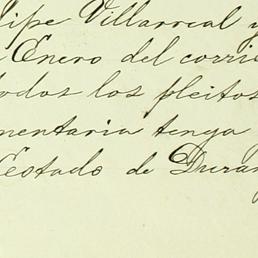 lipe Villarreal y
Enero del corrie
todos los pleitos
mentaria tenga
Estado de Duran